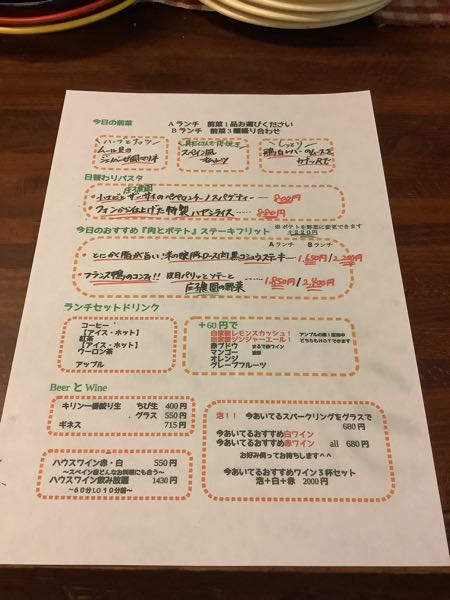 今日の前菜
Aランチ 前菜1品お選びください
Bランチ 前菜3種盛り合わせ
ハーブとナッツ
ムール貝の
スペイン風
しっとり
日替わりパスタ
ペペロンチーノスパゲティー 800円
フォンから仕上げた特製ハヤシライス 880円
今日のおすすめ『肉とポテト』ステーキフリット
※ポテトを野菜に変更できます
+220円
Aランチ Bランチ
ロース肉黒コショウステーキ 1,650/2,200円
フランス鴨のコンフィ!! 皮目パリッとソテーと 1,850/2,400円
農園の野菜
ランチセットドリンク
コーヒー
【アイス・ホット】
紅茶
【アイス・ホット】
ウーロン茶
アップル
+60円で
自家製レモンスカッシュ!
自家製ジンジャーエール!
どちらもHOTできます
赤ブドウ まるで赤ワイン
マンゴー 濃厚
オレンジ
グレープフルーツ
Beer と Wine
キリン一番絞り生 ちび生 400円
グラス 550円
ギネス 715円
ハウスワイン赤・白 550円
～スペイン産どんなお料理にも合う～
ハウスワイン飲み放題 1430円
～60分LO10分前～
泡!! 今あいてるスパークリングをグラスで
680円
今あいてるおすすめ白ワイン
今あいてるおすすめ赤ワイン all 680円
お好み伺ってお持ちします^^
今あいてるおすすめワイン3杯セット
泡+白+赤 2000円